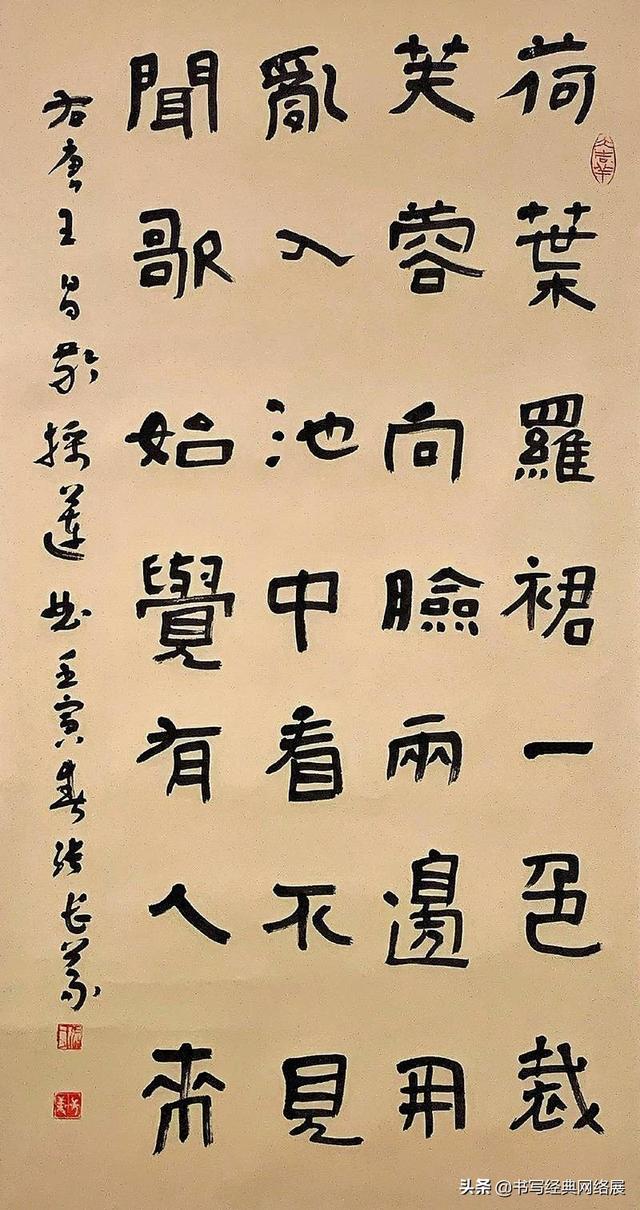 荷葉羅裙一色裁
芙蓉向臉兩邊開
亂入池中看不見
聞歌始覺有人來
右唐王昌齡採蓮曲壬寅春張長義
大吉羊
头条 @书写经典网络展